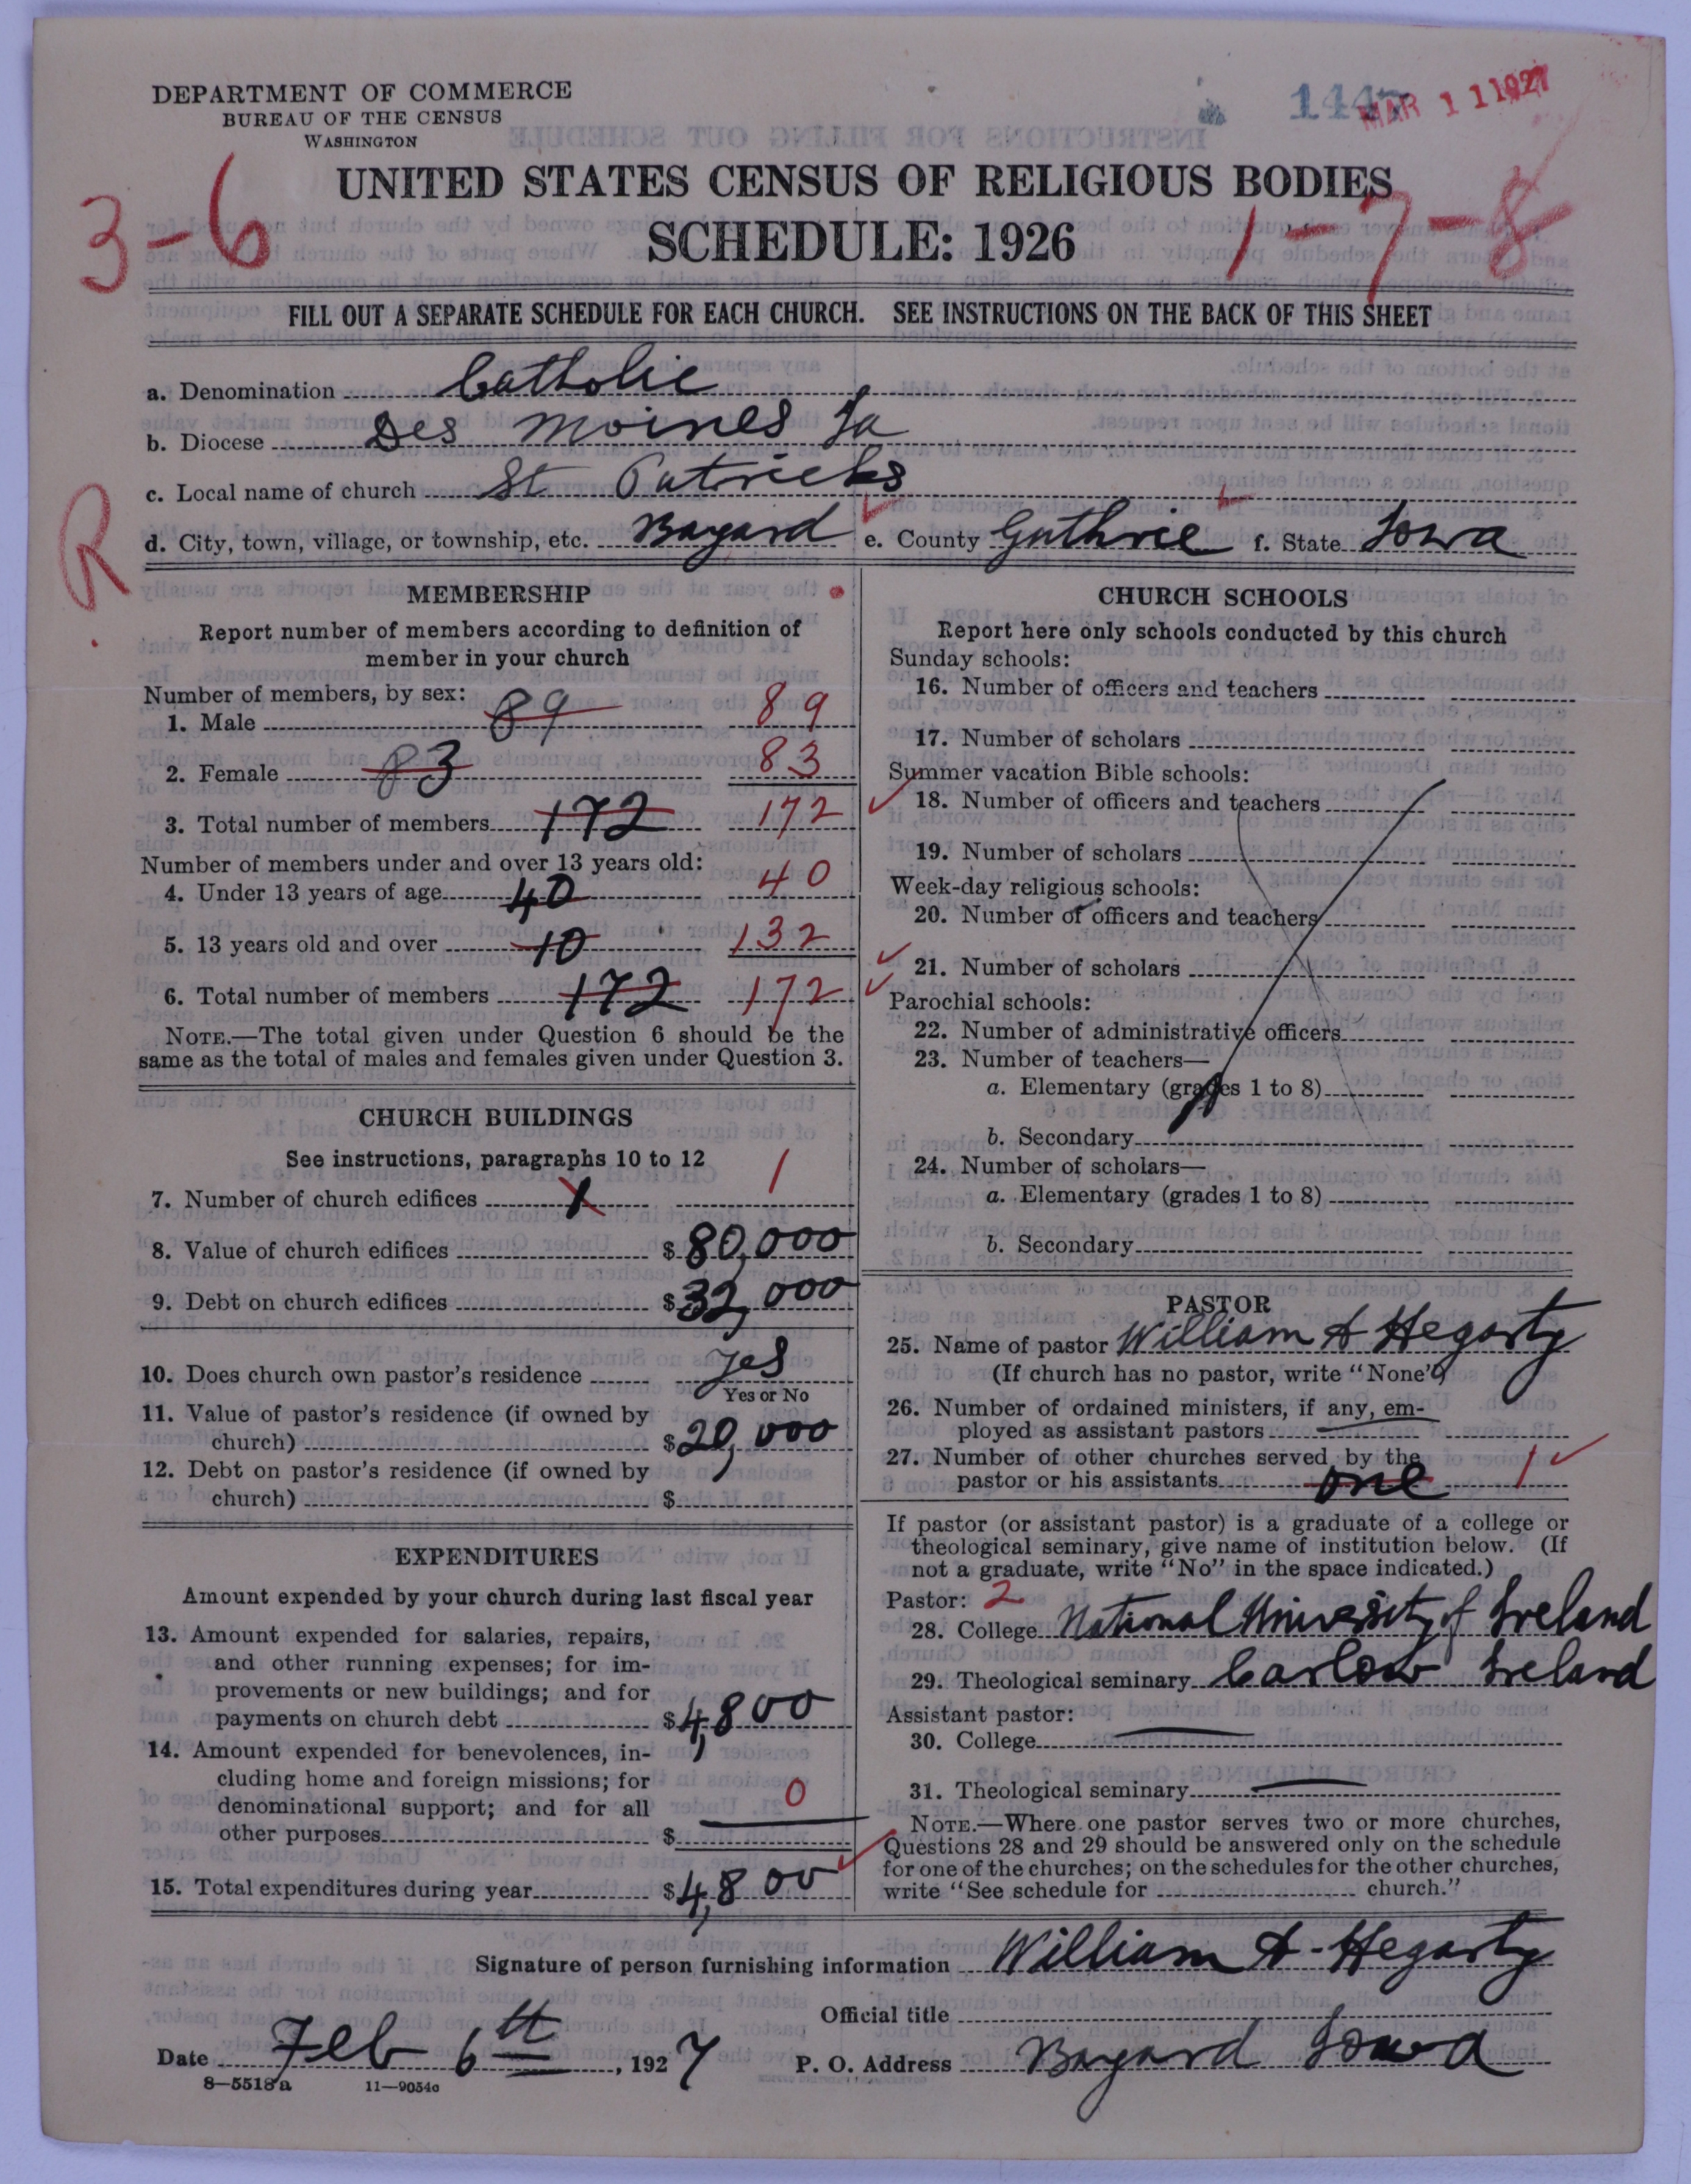 DEPARTMENT OF COMMERCE
BUREAU OF THE CENSUS
WASHINGTON
MAR 11 1927
UNITED STATES CENSUS OF RELIGIOUS BODIES
3-6
SCHEDULE: 1926
1-7-8
FILL OUT A SEPARATE SCHEDULE FOR EACH CHURCH. SEE INSTRUCTIONS ON THE BACK OF THIS SHEET
a. Denomination Catholic
b. Diocese Des Moines Ia
c. Local name of church St Patricks
R
d. City, town, village, or township, etc. Bayard e. County Guthrie f. State Iowa
MEMBERSHIP
Report number of members according to definition of
member in your church
Number of members, by sex:
1. Male 89 89
2. Female 83 83
3. Total number of members 172 172
Number of members under and over 13 years old:
4. Under 13 years of age 40 40
5. 13 years old and over 10 132
6. Total number of members 172 172
NOTE.—The total given under Question 6 should be the
same as the total of males and females given under Question 3.
CHURCH BUILDINGS
See instructions, paragraphs 10 to 12
7. Number of church edifices 1 1
8. Value of church edifices $80,000
9. Debt on church edifices $32,000
10. Does church own pastor's residence Yes
Yes or No
11. Value of pastor's residence (if owned by
church) $20,000
12. Debt on pastor's residence (if owned by
church) $
EXPENDITURES
Amount expended by your church during last fiscal year
13. Amount expended for salaries, repairs,
and other running expenses; for im-
provements or new buildings; and for
payments on church debt $4,800
14. Amount expended for benevolences, in-
cluding home and foreign missions; for
denominational support; and for all 0
other purposes $
15. Total expenditures during year $4,800
CHURCH SCHOOLS
Report here only schools conducted by this church
Sunday schools:
16. Number of officers and teachers
17. Number of scholars
Summer vacation Bible schools:
18. Number of officers and teachers
19. Number of scholars
Week-day religious schools:
20. Number of officers and teachers
21. Number of scholars
Parochial schools:
22. Number of administrative officers
23. Number of teachers—
a. Elementary (grades 1 to 8)
b. Secondary
24. Number of scholars—
a. Elementary (grades 1 to 8)
b. Secondary
PASTOR
25. Name of pastor William A Hegarty
(If church has no pastor, write "None")
26. Number of ordained ministers, if any, em-
ployed as assistant pastors
27. Number of other churches served by the
pastor or his assistants one 1
If pastor (or assistant pastor) is a graduate of a college or
theological seminary, give name of institution below. (If
not a graduate, write "No" in the space indicated.)
Pastor: 2
28. College National University of Ireland
29. Theological seminary Carlow Ireland
Assistant pastor:
30. College
31. Theological seminary
NOTE.—Where one pastor serves two or more churches,
Questions 28 and 29 should be answered only on the schedule
for one of the churches; on the schedules for the other churches,
write "See schedule for church."
Signature of person furnishing information William A. Hegarty
Official title
Date Feb 6th, 1927 P. O. Address Bayard Iowa
8—5518a 11—9054c